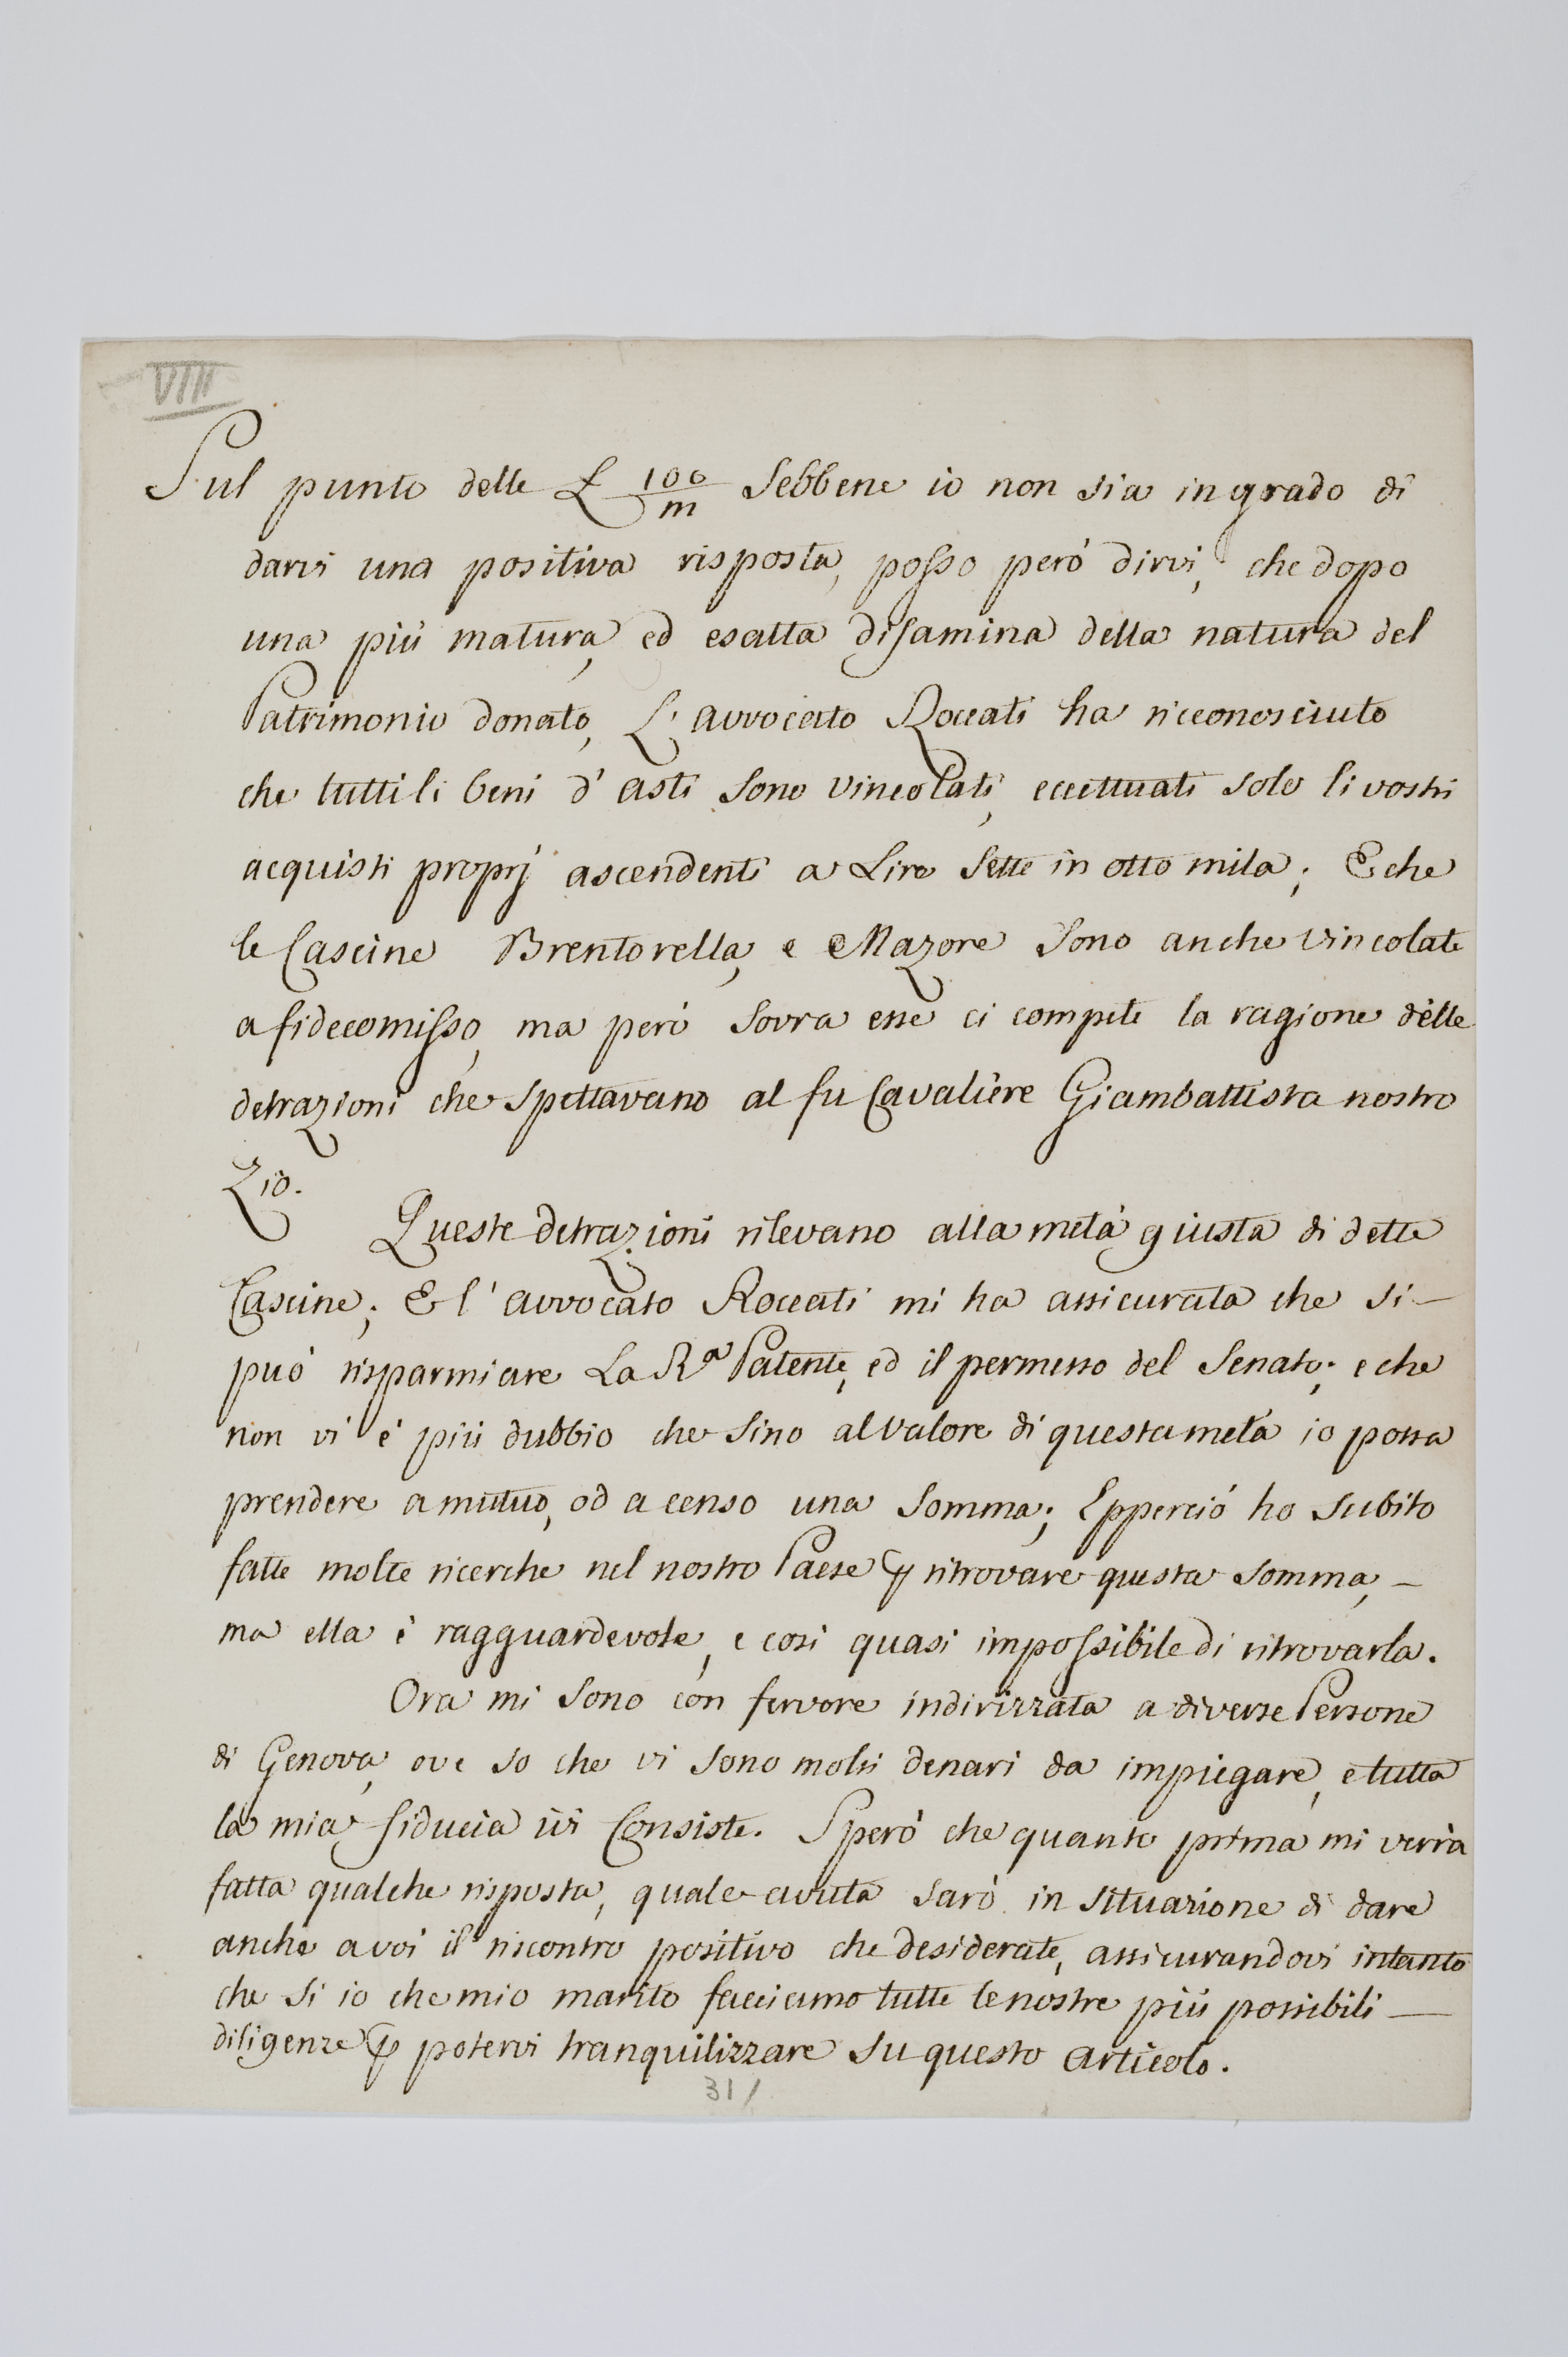 VIII
Sul punto delle £ 100/m Sebbene io non sia in grado di
darvi una positiva risposta, posso però dirvi, che dopo
una più matura, ed esatta disamina della natura del
Patrimonio donato, L'avvocato Roccati ha riceonosciuto
che tutti li beni d'asti sono vincolati, eccettuati solo li vostri
acquisti proprj ascendenti a Lire Sette in otto mila; E che
le Cascine Brentorella, e Mazore sono anche vincolate
a fidecomisso, ma però sovra esse ci compete la ragione delle
detrazioni che spettavano al fu Cavaliere Giambattista nostro
Zio.
Queste detrazioni rilevano alla metà giusta di dette
Cascine; E l'avvocato Roccati mi ha assicurata che si —
può risparmiare La Rª Patente, ed il permesso del Senato; e che
non vi è più dubbio che sino al valore di questa metà io possa
prendere a mutuo, od a censo una somma; Epperciò ho subito
fatte molte ricerche nel nostro Paese ꝑ ritrovare questa somma, —
ma ella è ragguardevole, e così quasi impossibile di ritrovarla.
Ora mi sono con fervore indirizzata a diverse Persone
di Genova, ove so che vi sono molti denari da impiegare, e tutta
la mia fiducia ivi Consiste. Sperò che quanto prima mi verrà
fatta qualche risposta, quale avuta sarò in situazione di dare
anche a voi il riscontro positivo che desiderate, assicurandovi intanto
che si io che mio marito facciamo tutte le nostre più possibili —
diligenze ꝑ potervi tranquilizzare su questo articolo.
31/